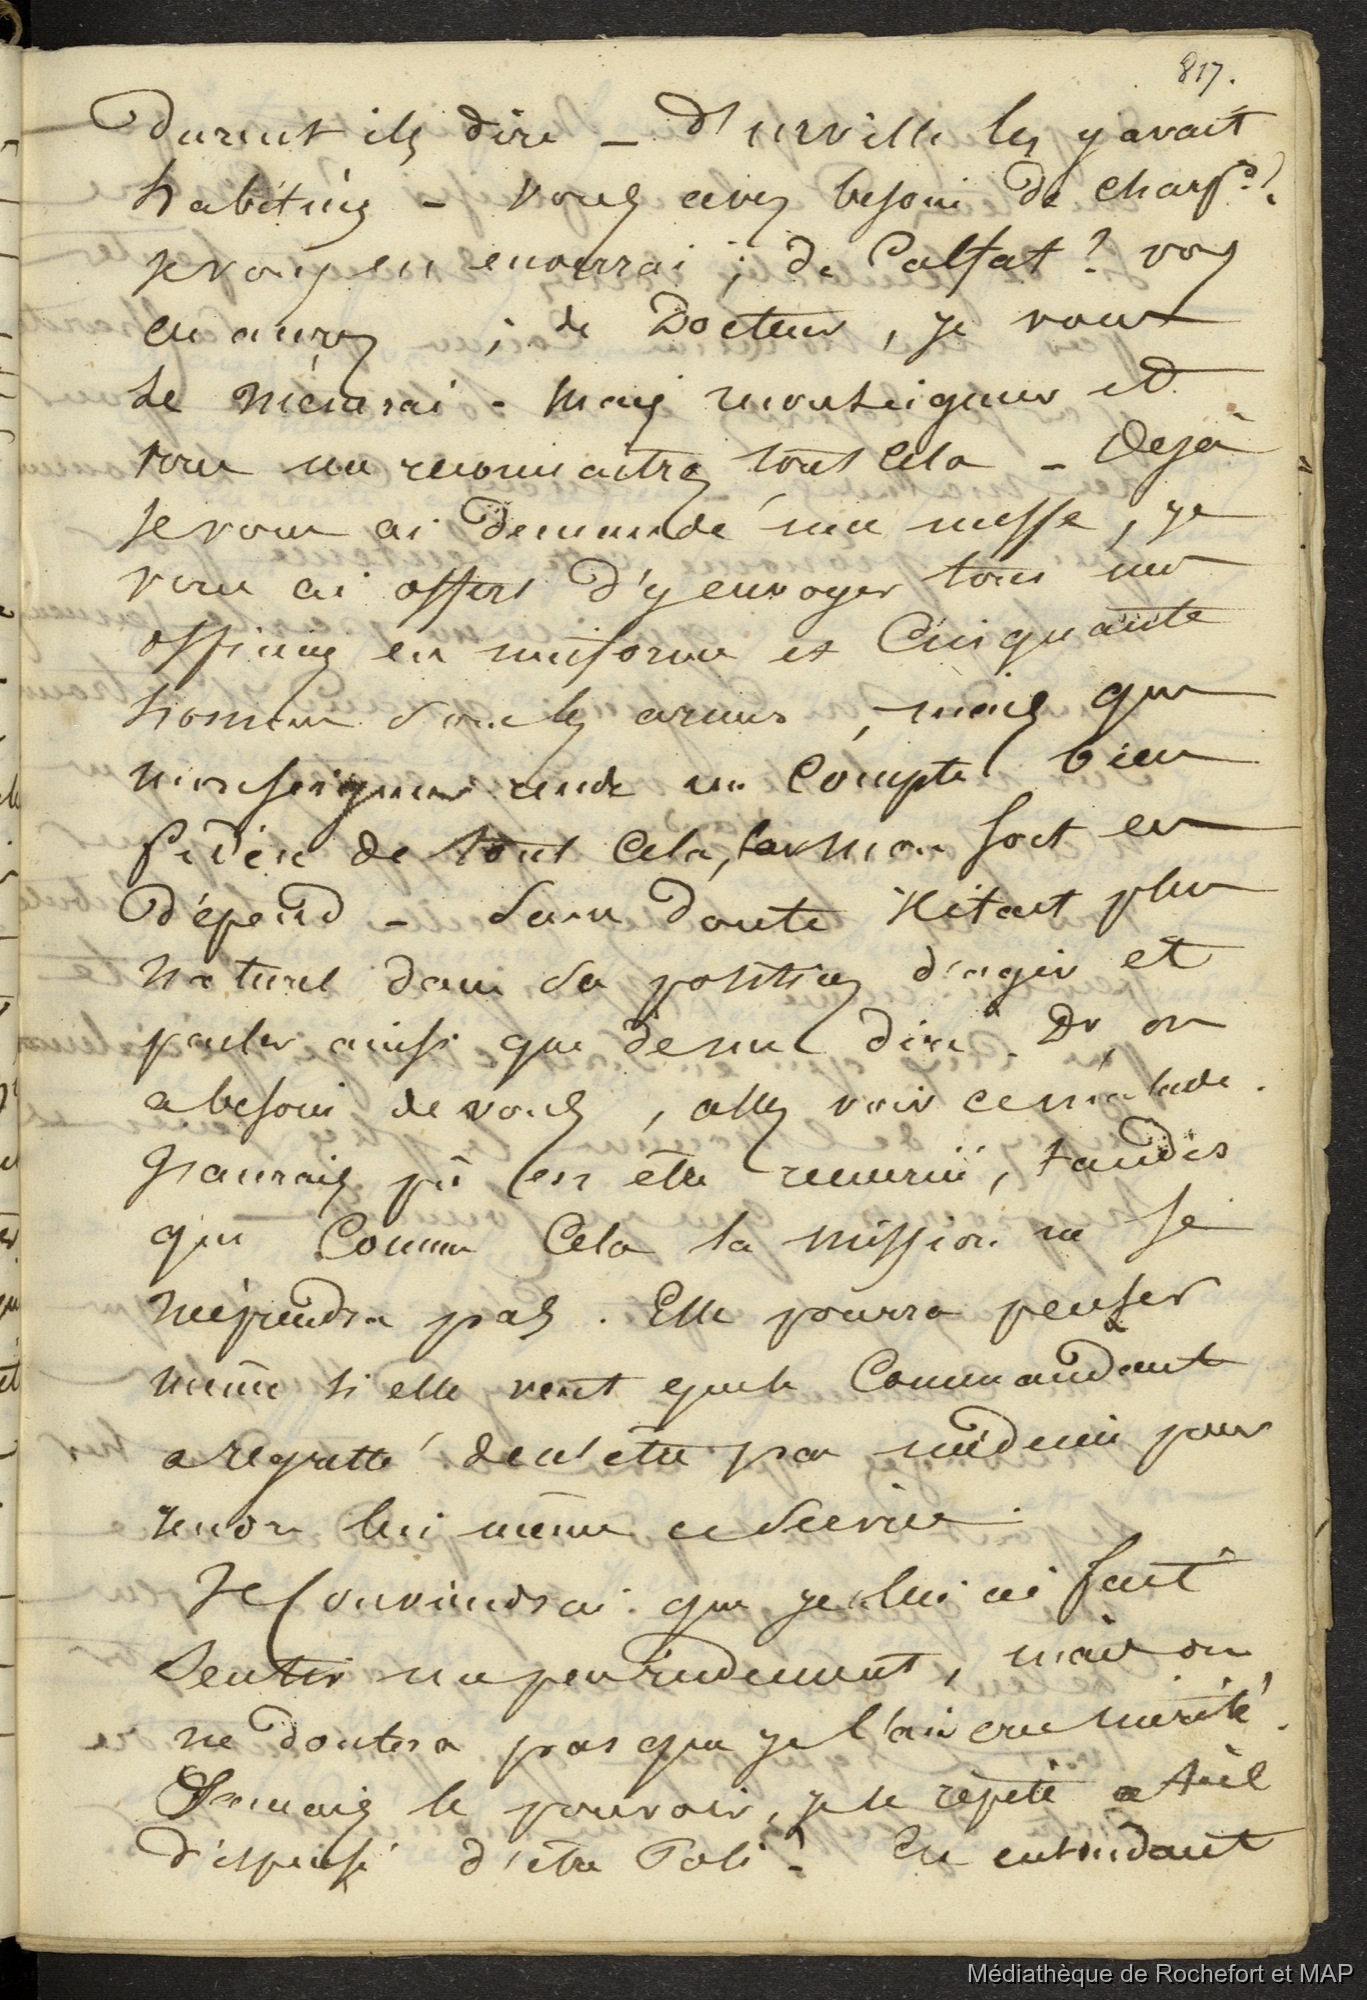 817.
Durent ils dire _ D'urville les y avait
habitués - vous avez besoin de charp.er?
je vous en enverrai ; de Calfat ? vous
en aurez ; de Docteur, je vous
le mènerai - mais monseigneur et
vous me reconnaitrez tout cela - Dejà
Je vous ai demandé une messe, je
vous ai offert d'y envoyer tous mes
officiers en uniforme et Cinquante
hommes sous les armes, mais que
monseigneur rende un Compte bien
fidèle de tout Cela, car mon sort en
dépend - Sans doute il était plus
naturel dans sa position d'agir et
parler ainsi que de me dire. Dr, on
a besoin de vous, allez voir ce malade.
J'saurais pû en être remercié, tandis
que Comme Cela la mission ne se
méprendra pas. Elle pourra penser
même si elle veut que le Commandant
a regretté de n'être pas médecin pour
rendre lui même ce Service.
Je Conviendrai que je le lui ai fait
Sentir un peu rudement, mais on
ne doutera pas que je l'ai cru mérité.
Jamais le pouvoir, je le répète a t'il
dispensé d'être Poli ? En entendant
Médiathèque de Rochefort et MAP